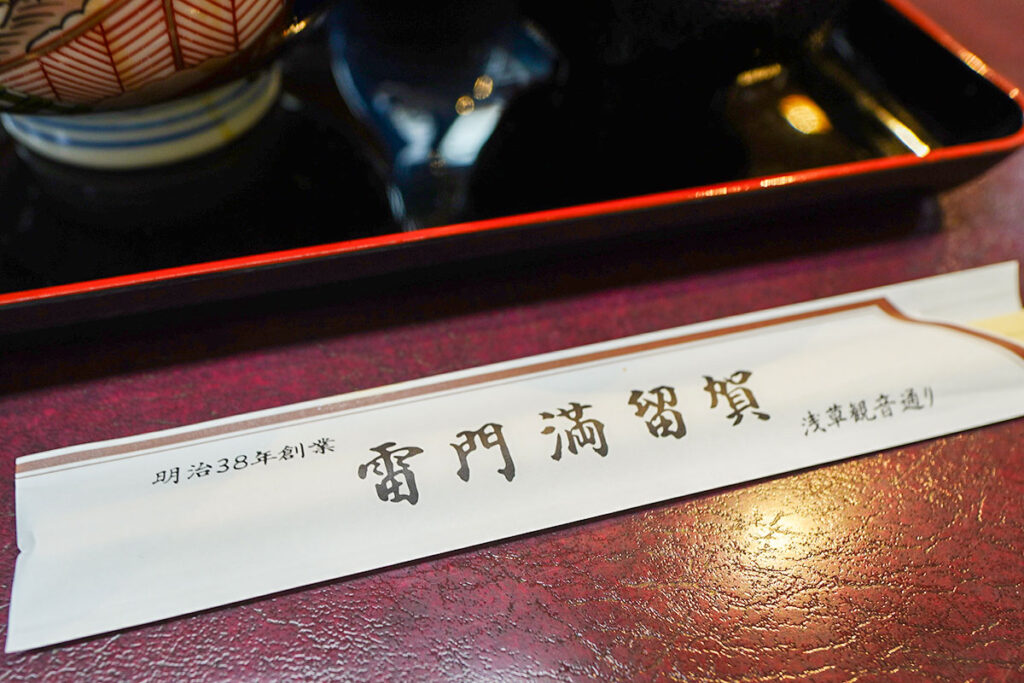 明治38年創業 雷門満留賀 浅草観音通り